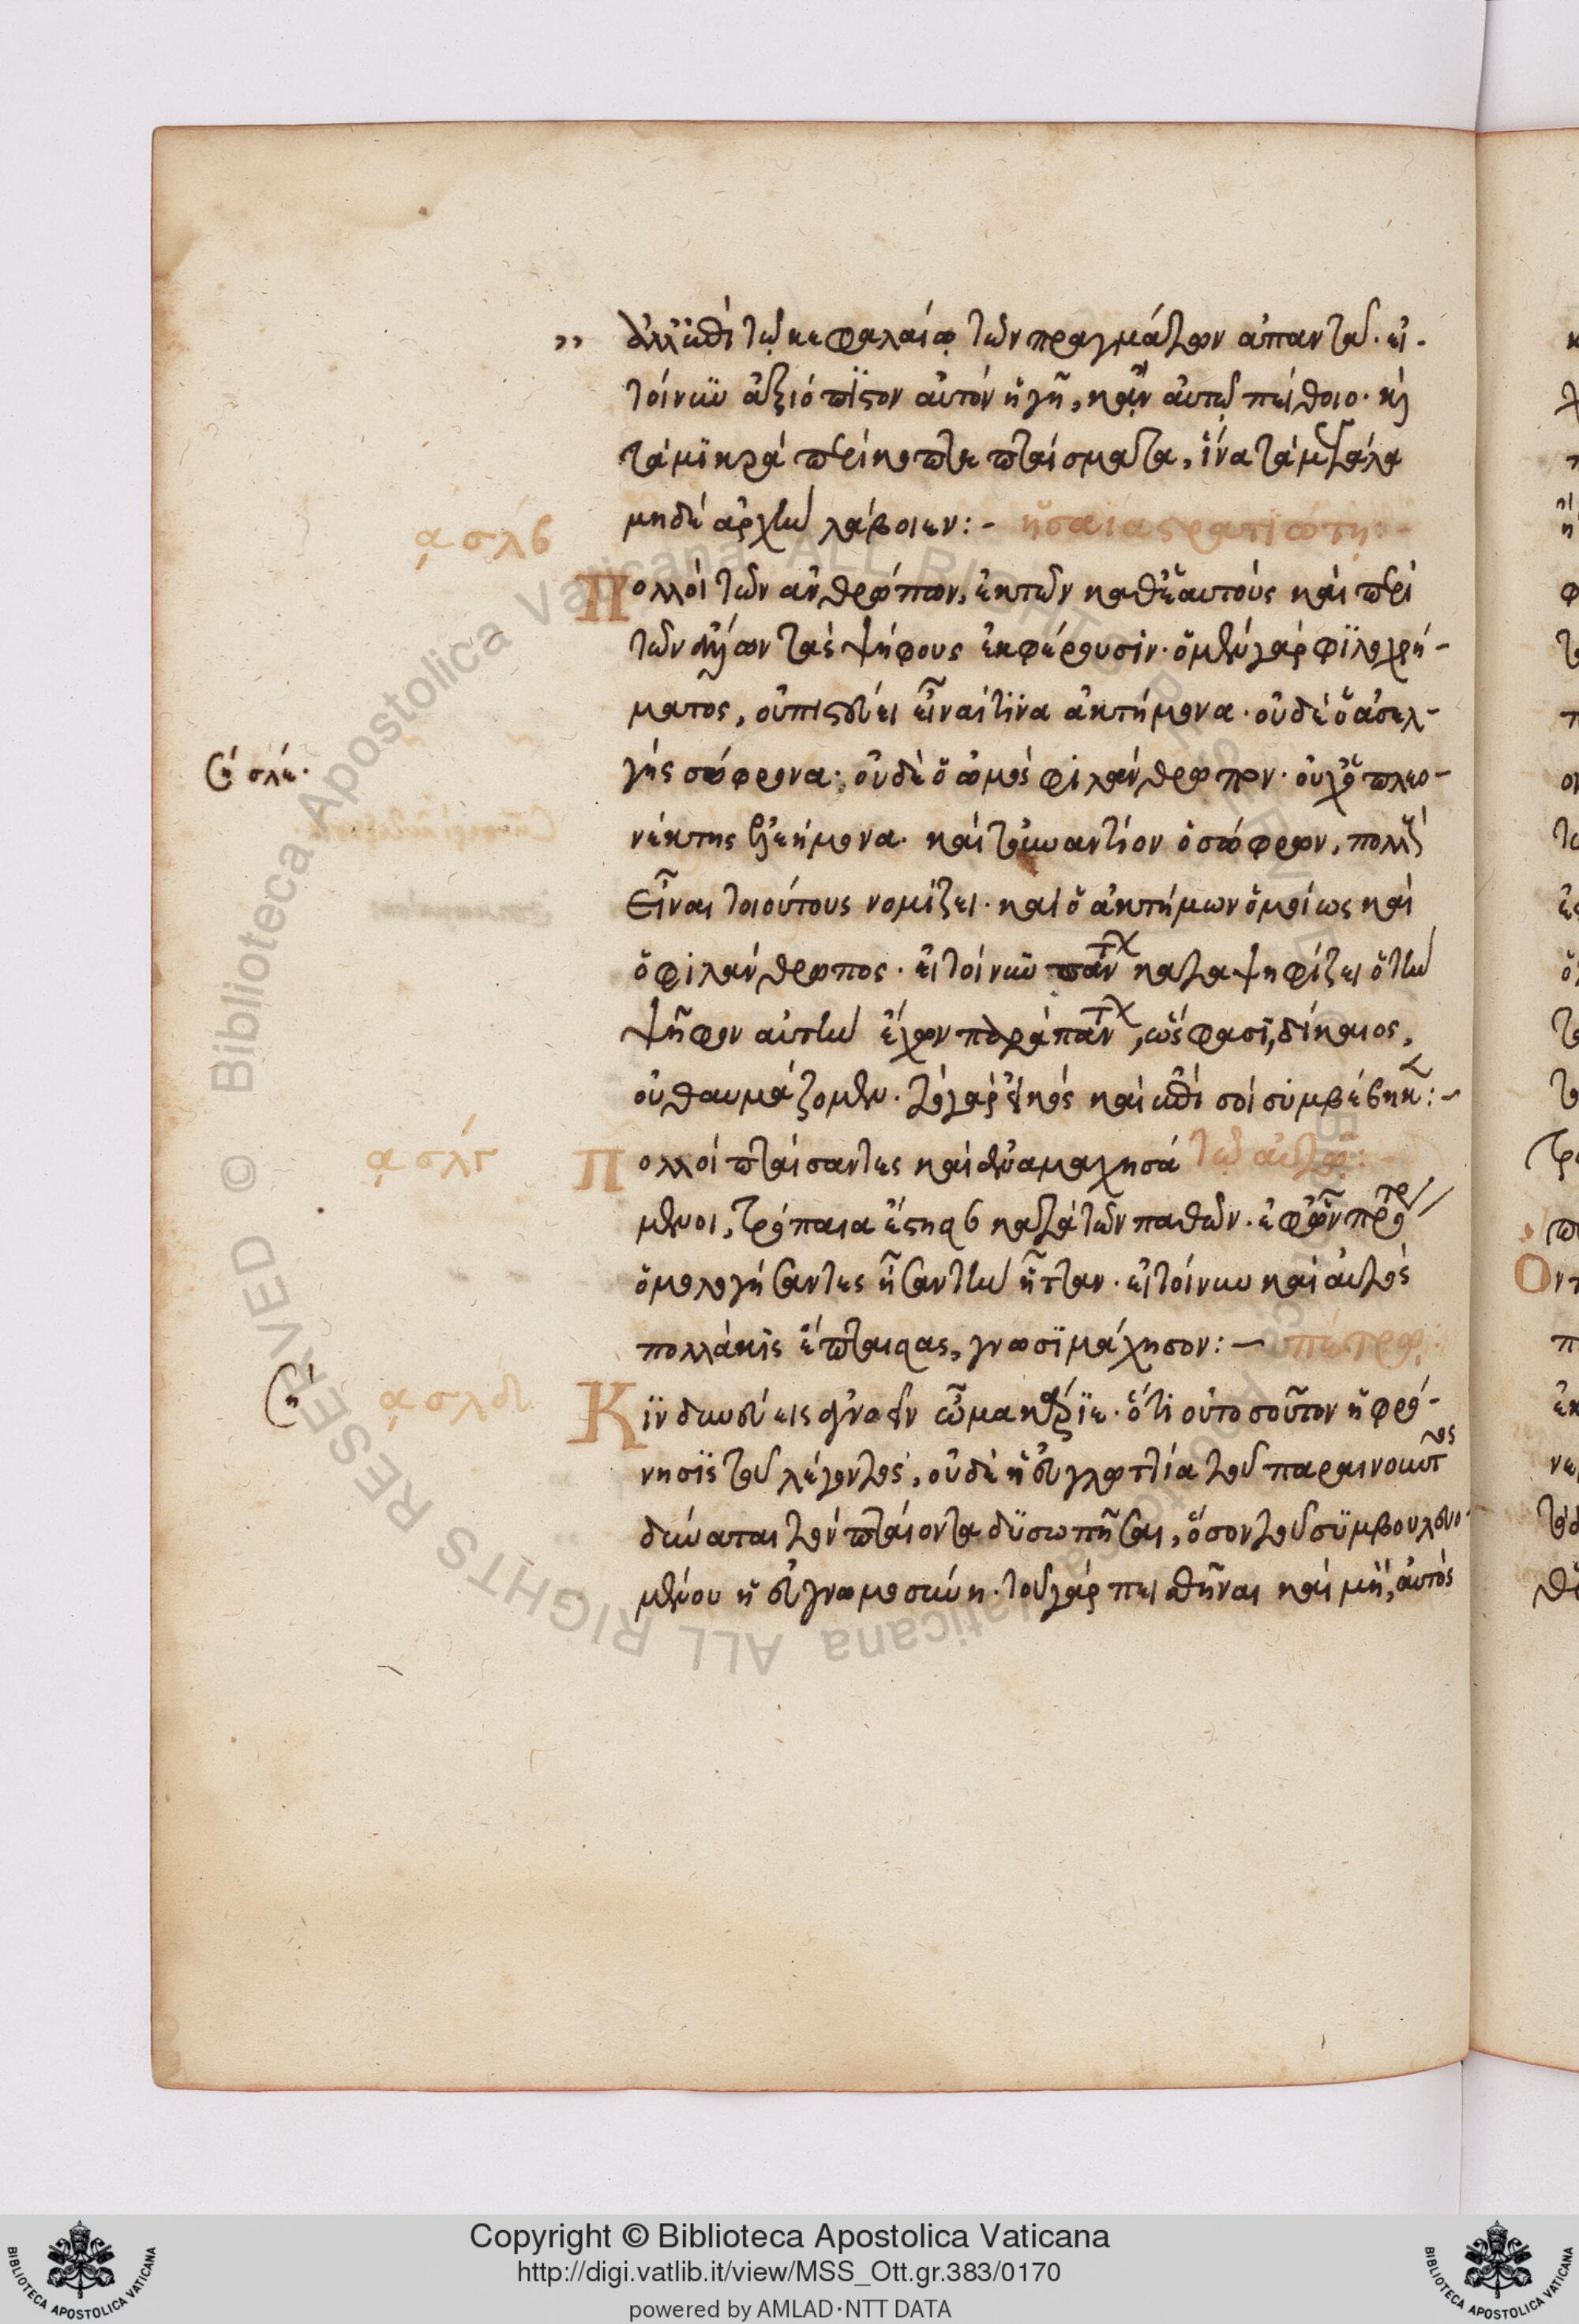 „ ἀλλ' ἐπὶ τῷ κεφαλαίῳ τῶν πραγμάτων ἀπαντᾷ. εἰ
τοίνυν ἀξιόπιστον αὐτὸν ἡγῇ, κἂν αὐτῷ πείθοιο. καὶ
τὰ μικρὰ περίκοπτε πταίσματα, ἵνα τὰ μεγάλα
μηδὲ ἀρχὴν λάβοιεν:- ἡσαΐα στρατιώτῃ:-
͵α σλβ
Πολλοὶ τῶν ἀνθρώπων, ἐκ τῶν καθ' ἑαυτοὺς καὶ περὶ
τῶν ἄλλων τὰς ψήφους ἐκφέρουσιν. ὁ μὲν γὰρ φιλοχρή-
ματος, οὐ πιστεύει εἶναί τινα ἀκτήμονα. οὐδὲ ὁ ἀσελ-
γὴς σώφρονα. οὐδὲ ὁ ὠμὸς φιλάνθρωπον. οὐχ ὁ πλεο-
σλε.
νέκτης ἐλεήμονα. καὶ τοὐναντίον ὁ σώφρων, πολλοὺς
εἶναι τοιούτους νομίζει. καὶ ὁ ἀκτήμων ὁμοίως καὶ
ὁ φιλάνθρωπος. εἰ τοίνυν πανταχ καταψηφίζει ὁ τὴν
ψῆφον αὐτὴν ἔχων παρὰ πανταχ, ὥς φασι, δίκαιος,
οὐ θαυμάζομεν. τὸ γὰρ εἰκὸς καὶ ἐπὶ σοὶ συμβέβηκε:-
͵α σλγ
Πολλοὶ πταίσαντες καὶ ἀναμαχησά τῷ αὐτῷ:-
μενοι, τρόπαια ἔστησαν κατὰ τῶν παθῶν. ἐφ' ὧν πρότερ
ὁμολογήσαντες ἦσαν τὴν ἧτταν. εἰ τοίνυν καὶ αὐτὸς
πολλάκις ἔπταισας, γνωσιμάχησον:- πέτρῳ:
͵α σλδ
Κινδυνεύεις ἀγνοεῖν ὦ μακάριε. ὅτι οὐ τοσοῦτον ἡ φρό-
νησις τοῦ λέγοντος, οὐδὲ ἡ εὐγλωττία τοῦ παραινοῦντος
δύναται τὸν πταίοντα δυσωπῆσαι, ὅσον τοῦ συμβουλευο-
μένου ἡ εὐγνωμοσύνη. τοῦ γὰρ πεισθῆναι καὶ μὴ, αὐτὸς
Copyright © Biblioteca Apostolica Vaticana
http://digi.vatlib.it/view/MSS_Ott.gr.383/0170
powered by AMLAD·NTT DATA